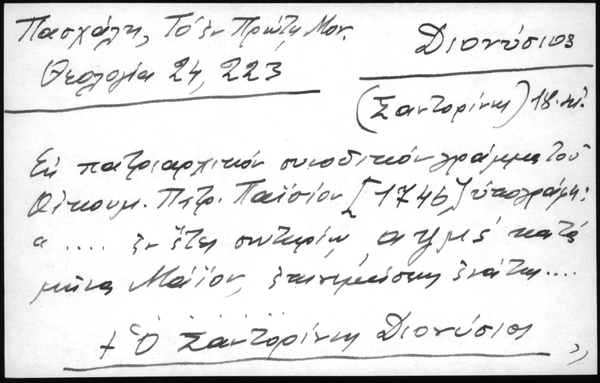 Πασχάλη, Τὸ ἐν Πρώτῃ Μον.
Θεολογία 24, 223
Διονύσιος
(Σαντορίνης) 18. αἰ.
Εἰς πατριαρχικόν συνοδικόν γράμμα τοῦ
Οἰκουμ. Πατρ. Παϊσίου [1746] ὑπογράφει:
α .... ἐν ἔτει σωτηρίῳ, αψμϛ΄ κατά
μῆνα Μάϊον, ἐπινεμήσεως ἐνάτης....
+ Ὁ Σαντορίνης Διονύσιος